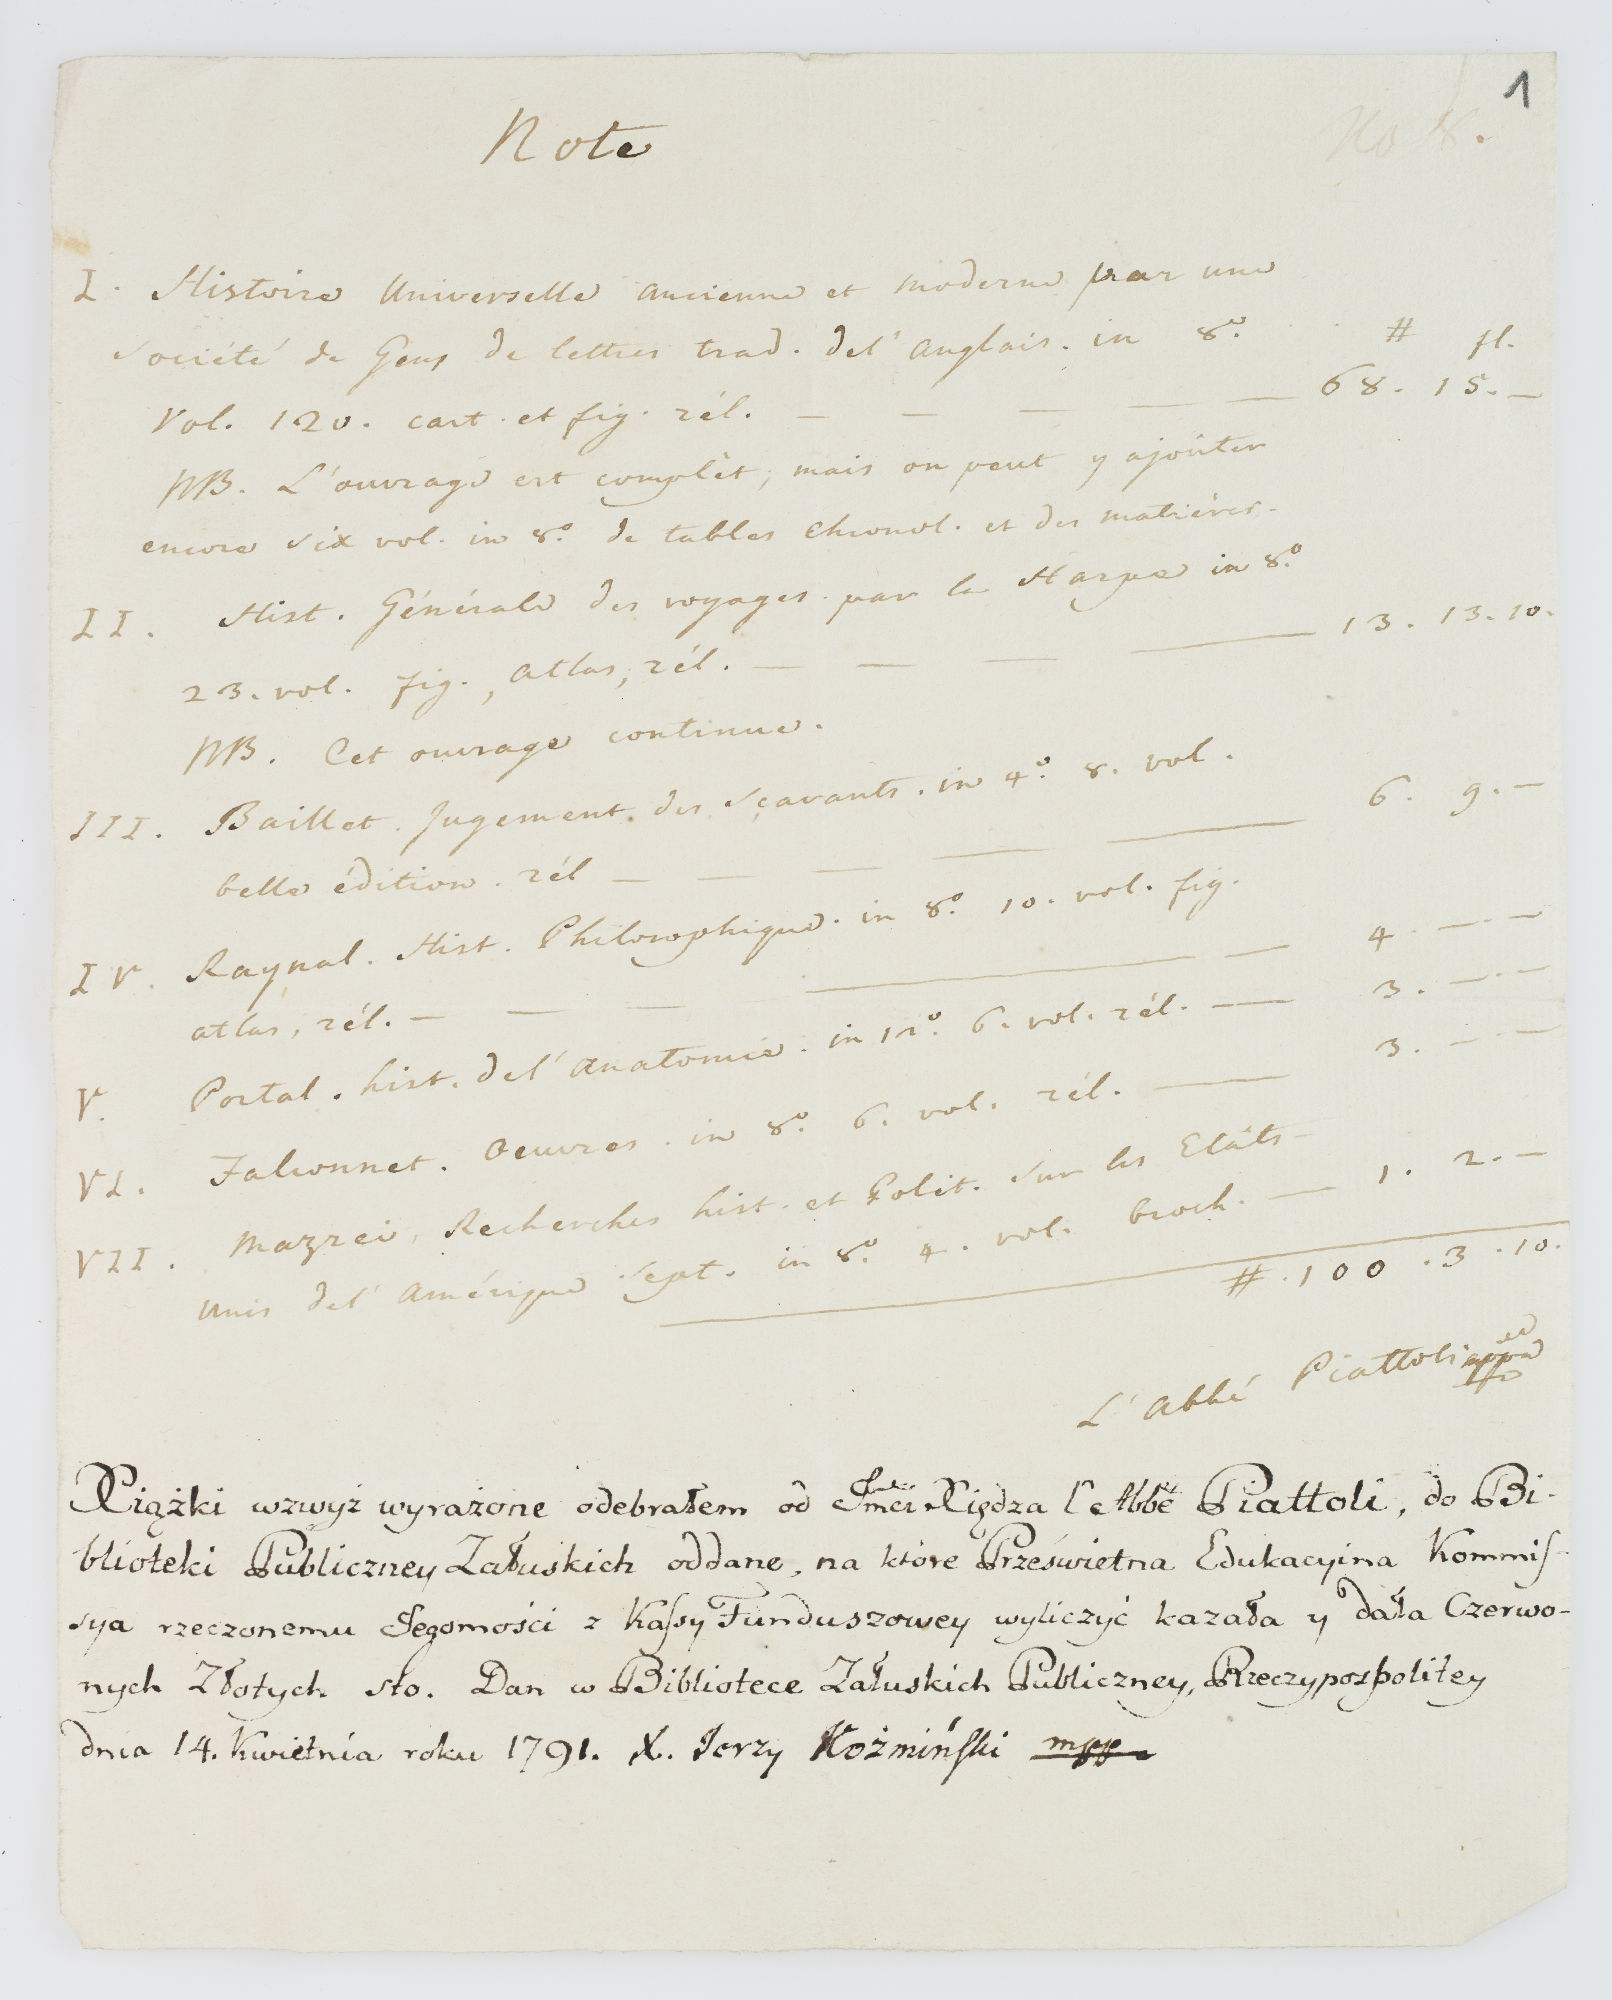 1
No 8.
Note
I. Histoire Universelle ancienne et moderne par une
Société de Gens de lettres trad. del' anglais. in 8.º # fl.
Vol. 120. cart. et fig. rél. — — — — — 68. 15. —
NB. L'ouvrage est complèt, mais on peut y ajoûter
encore six vol. in 8.º de tables chronol. et des matières.
II. Hist. Générale des voyages par la Harpe in 8.º
23. vol. fig., atlas, rél. — — — — 13. 13. 10.
NB. Cet ouvrage continue.
III. Baillet. Jugement des Sçavants. in 4.º 8. vol.
belle édition. rél — — — — — 6. 9. —
IV. Raynal. Hist. Philosophique. in 8.º 10. vol. fig.
atlas, rél. — — — — — 4. — . —
V. Portal. hist. del' anatomie. in 12.º 6. vol. rél. — 3. — . —
VI. Falconnet. Oeuvres. in 8.º 6. vol. rél. — 3. — . —
VII. Mazzei, Recherches hist. et Polit. sur les Etâts-
unis del' amérique Sept. in 8.º 4. vol. broch. — 1. 2. —
# . 100 . 3 . 10.
L'abbé Piattoli
Xiążki wzwyż wyrażone odebrałem od Jmći Xiędza l'Abbé Piattoli, do Bi-
blioteki Publiczney Załuskich oddane, na które Prześwietna Edukacyina Kommis-
sya rzeczonemu Jegomości z Kassy Funduszowey wyliczyć kazała y dała Czerwo-
nych Złotych sto. Dan w Bibliotece Załuskich Publiczney, Rzeczypospolitey
dnia 14. Kwietnia roku 1791. X. Jerzy Koźmiński mpp